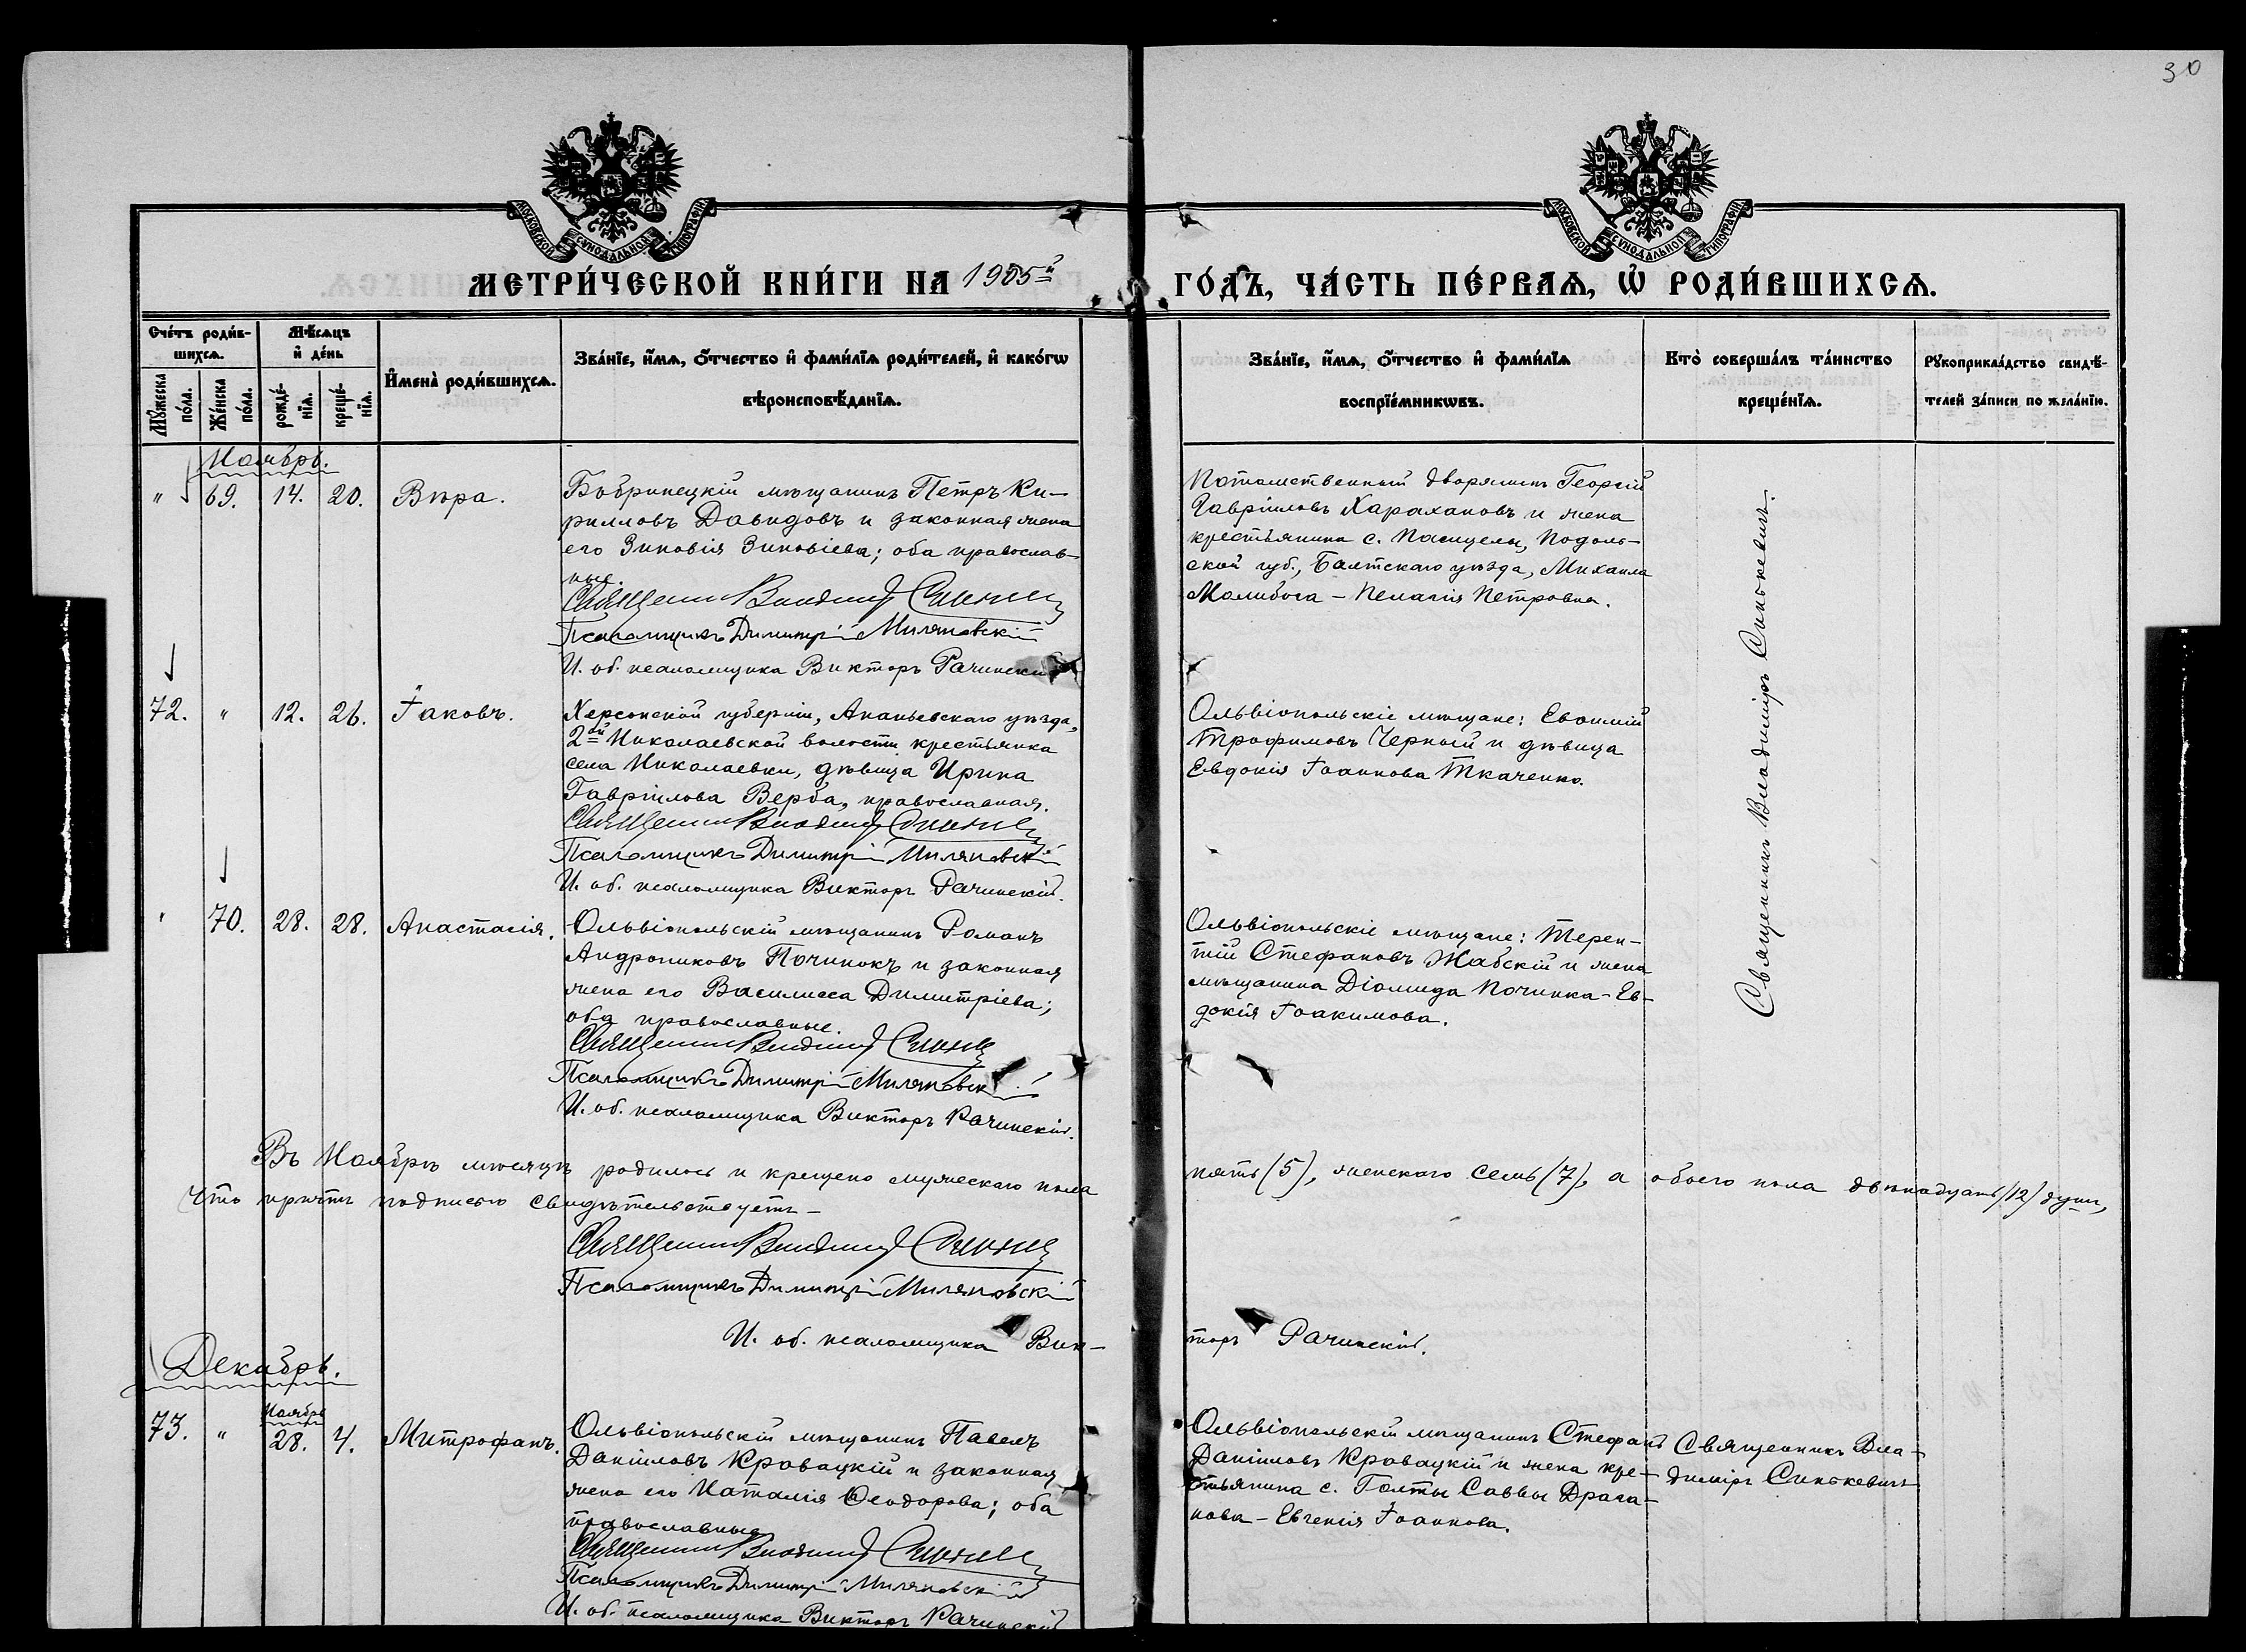 30
МОСКОВСКОЙ СѴНОДАЛЬНОЙ ТИПОГРАФІИ
МОСКОВСКОЙ СѴНОДАЛЬНОЙ ТИПОГРАФІИ
МЕТРИ́ЧЕСКОЙ КНИ́ГИ НА 1905й ГО́ДЪ, ЧА́СТЬ ПЕ́РВАѦ, Ѡ҆ РОДИ́ВШИХСѦ.
Сче́тъ роди́в-
шихсѧ.
Мꙋ́жеска по́ла.
Же́нска по́ла.
Мѣ́сѧцъ
и҆ де́нь
рожде́-
нїѧ.
креще́-
нїѧ.
И҆мена̀ роди́вшихсѧ.
Зва́нїе, и҆́мѧ, ѻ҆́тчество и҆ фами́лїѧ роди́телей, и҆ како́гѡ
вѣроисповѣ́данїѧ.
Зва́нїе, и҆́мѧ, ѻ҆́тчество и҆ фами́лїѧ
воспрїе́мникѡвъ.
Кто̀ соверша́лъ та́инство
креще́нїѧ.
Рꙋкоприкла́дство свидѣ́-
телей за́писи по жела́нїю.
Ноябрь.
" 69. 14. 20. Вѣра.
Бобринецкій мѣщанинъ Петръ Ки-
рилловъ Давидовъ и законная жена
его Зиновія Зиновіева; оба православ-
ные.
Священникъ Владиміръ Синькевичъ
Псаломщикъ Димитрій Миляновскій
И. об. псаломщика Викторъ Рачинскій
Потомственный дворянинъ Георгій
Гавріиловъ Харахановъ и жена
крестьянина с. Пасицелы, Подоль-
ской губ., Балтскаго уѣзда, Михаила
Молибога - Пелагія Петровна.
Священникъ Владиміръ Синькевичъ.
72. " 12. 26. Іаковъ.
Херсонской губерніи, Ананьевскаго уѣзда,
2ой Николаевской волости крестьянка
села Николаевки, дѣвица Ирина
Гавріилова Верба, православная.
Священникъ Владиміръ Синькевичъ
Псаломщикъ Димитрій Миляновскій
И. об. псаломщика Викторъ Рачинскій.
Ольвіопольскіе мѣщане: Евѳимій
Трофимовъ Черный и дѣвица
Евдокія Іоаннова Ткаченко.
" 70. 28. 28. Анастасія.
Ольвіопольскій мѣщанинъ Романъ
Андрониковъ Починокъ и законная
жена его Василисса Димитріева;
оба православные.
Священникъ Владиміръ Синькевичъ
Псаломщикъ Димитрій Миляновскій
И. об. псаломщика Викторъ Рачинскій.
Ольвіопольскіе мѣщане: Терен-
тій Стефановъ Жабскій и жена
мѣщанина Діомида Починка - Ев-
докія Іоакимова.
Въ Ноябрѣ мѣсяцѣ родилось и крещено мужескаго пола пять (5), женскаго семь (7), а обоего пола двѣнадцать (12) душъ,
Что причтъ подписью свидѣтельствуетъ -
Священникъ Владиміръ Синькевичъ
Псаломщикъ Димитрій Миляновскій
И. об. псаломщика Вик- торъ Рачинскій.
Декабрь.
73. " Ноября 28. 4. Митрофанъ.
Ольвіопольскій мѣщанинъ Павелъ
Даніиловъ Кровацкій и законная
жена его Наталія Ѳеодорова; оба
православные
Священникъ Владиміръ Синькевичъ
Псаломщикъ Димитрій Миляновскій
И. об. псаломщика Викторъ Рачинскій
Ольвіопольскій мѣщанинъ Стефанъ
Даніиловъ Кровацкій и жена кре-
стьянина с. Голты Саввы Драга-
нова - Евгенія Іоаннова.
Священникъ Вла-
диміръ Синькевичъ